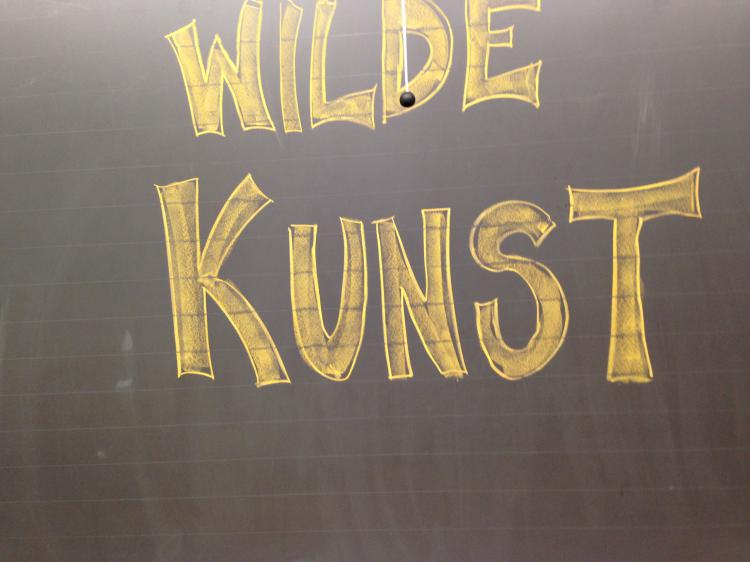 WILDE
KUNST